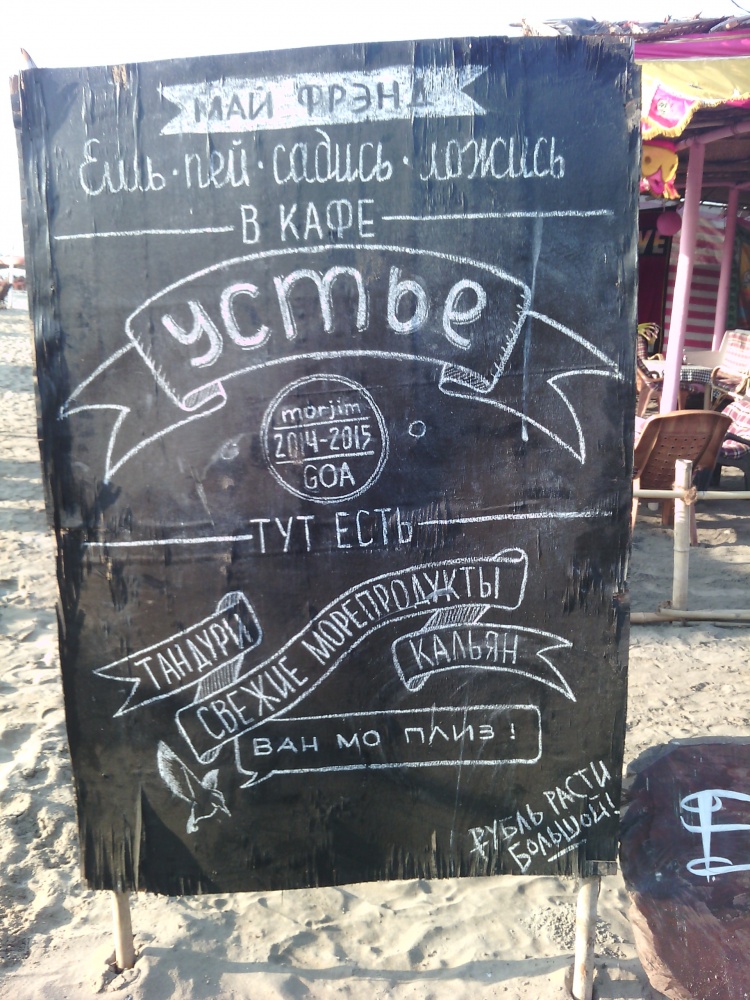 МАЙ ФРЭНД
Ешь·пей·садись·ложись
В КАФЕ
устье
morjim
2014-2015
GOA
ТУТ ЕСТЬ
ТАНДУРИ
СВЕЖИЕ МОРЕПРОДУКТЫ
КАЛЬЯН
ВАН МО ПЛИЗ!
РУБЛЬ РАСТИ
БОЛЬШОЙ!